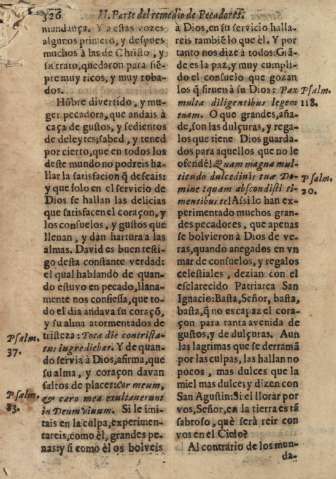 326 II. Parte del remedio de Pecadores.
mundança. Y a estas vozes
algunos primero, y despues
muchos à las de Christo, y
su trato, quedaron para siẽ-
pre muy ricos, y muy roba-
dos.
Hõbre divertido, y mu-
ger pecadora, que andais à
caça de gustos, y sedientos
de deleytes; sabed, y tened
por cierto, que en todos los
deste mundo no podreis ha-
llar la satisfacion q̃ deseais:
y que solo en el servicio de
Dios se hallan las delicias
que satisfacen el coraçon, y
los consuelos, y gustos que
llenan, y dàn hartura à las
almas. David es buen testi-
go desta constante verdad:
el qual hablando de quan-
do estuvo en pecado, llana-
mente nos confiessa, que to-
do el dia andava su coraçõ,
y su alma atormentados de
Psalm.
37.
tristeza: Tota die contrista-
tus ingrediebar. Y de quan-
do servia à Dios, afirma, que
su alma, y coraçon davan
Psalm.
83.
saltos de placer: Cor meum,
& caro mea exultaverunt
in Deum vivum. Si le imi-
tais en la culpa, experimen-
tareis, como èl, grandes pe-
nas: y si como èl os bolveis
à Dios, en su servicio halla-
reis tambiẽ lo que èl. Y por
tanto nos dize à todos: Grã-
de es la paz, y el cumplido
consuelo que gozan
los q̃ sirven à su Dios: Pax
Psalm.
118.
multa diligentibus legem
tuam. O que grandes, aña-
de, son las dulçuras, y rega-
los que tiene Dios guarda-
dos para aquellos que no le
ofendẽ! Quam magna mul-
titudo dulcedinis tuæ Do-
Psalm.
30.
mine quam abscondisti ti-
mentibus te! Assi lo han ex-
perimentado muchos gran-
des pecadores, que apenas
se bolvieron à Dios de ve-
ras, quando anegados en vn
mar de consuelos, y regalos
celestiales, dezian con el
esclarecido Patriarca San
Ignacio: Basta, Señor, basta,
basta, q̃ no es capaz el cora-
çon para tanta avenida de
gustos, y de dulçuras. Aun
las lagrimas que se derramã
por las culpas, las hallan no
pocos, mas dulces que la
miel mas dulce: y dizen con
San Agustin: Si el llorar por
vos, Señor, en la tierra es tã
sabroso, què serà reir con
vos en el Cielo?
Al contrario de los mun-
da-